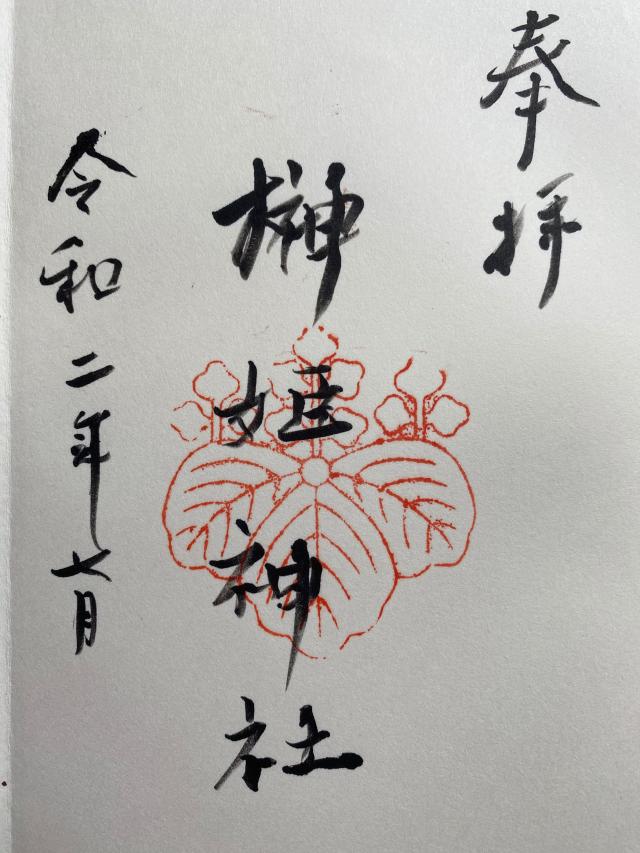 奉拝
榊姫神社
令和二年七月